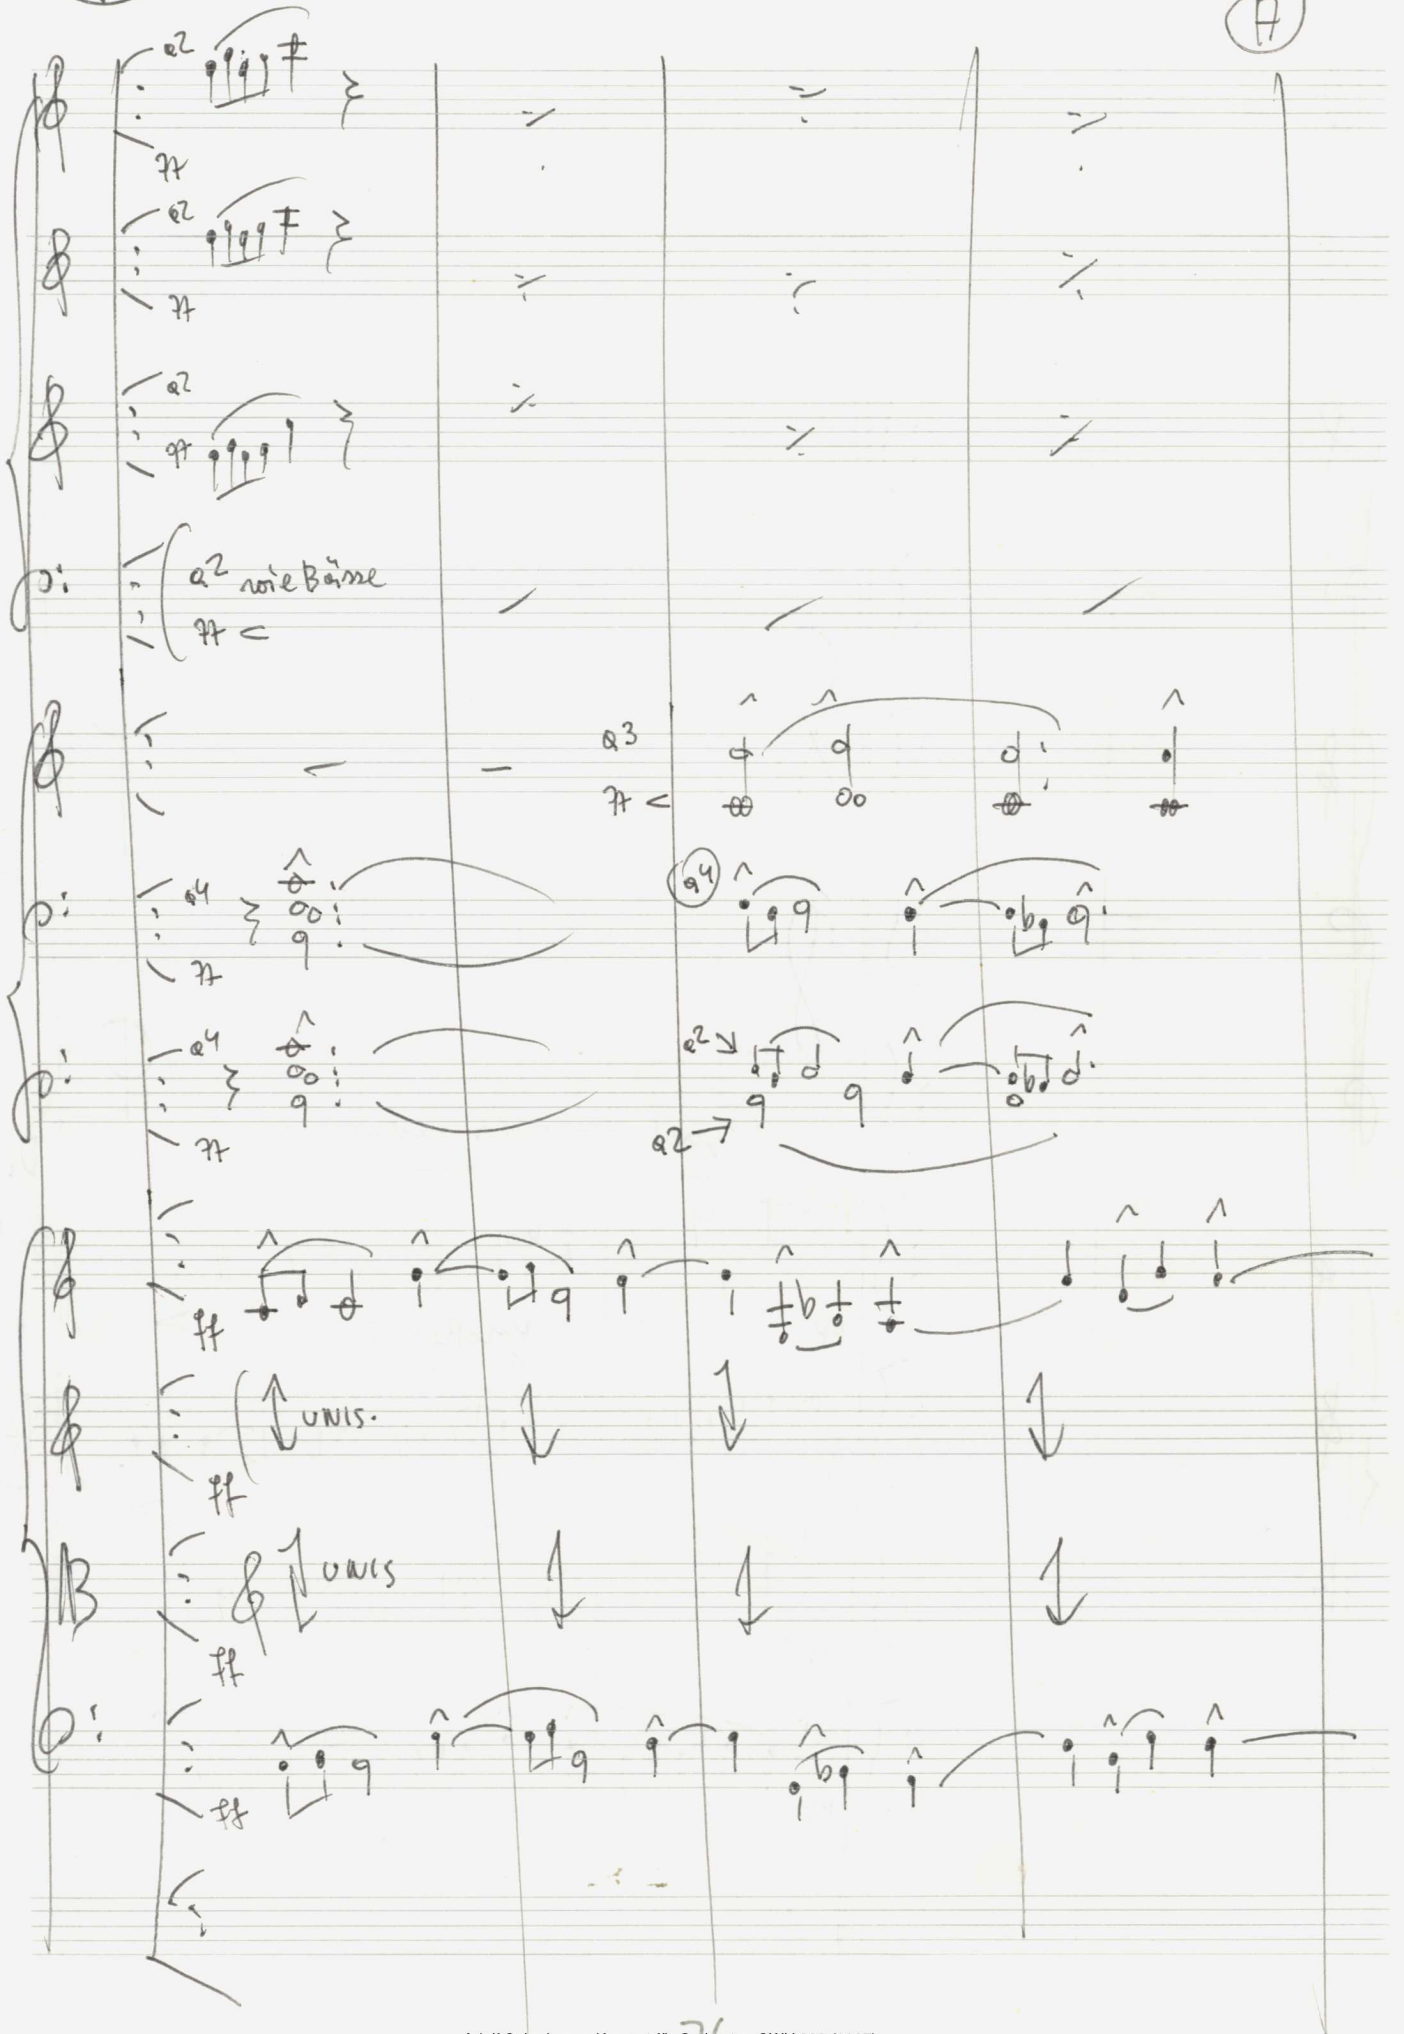 A
a2
ff
a2
ff
a2
ff
a2 wie Bässe
ff <
a3
ff <
a4
ff
a4
a4
ff
a2
a2
ff
UNIS.
ff
UNIS
ff
ff